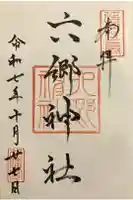 奉拝
六郷神社
令和七年十月廿七日